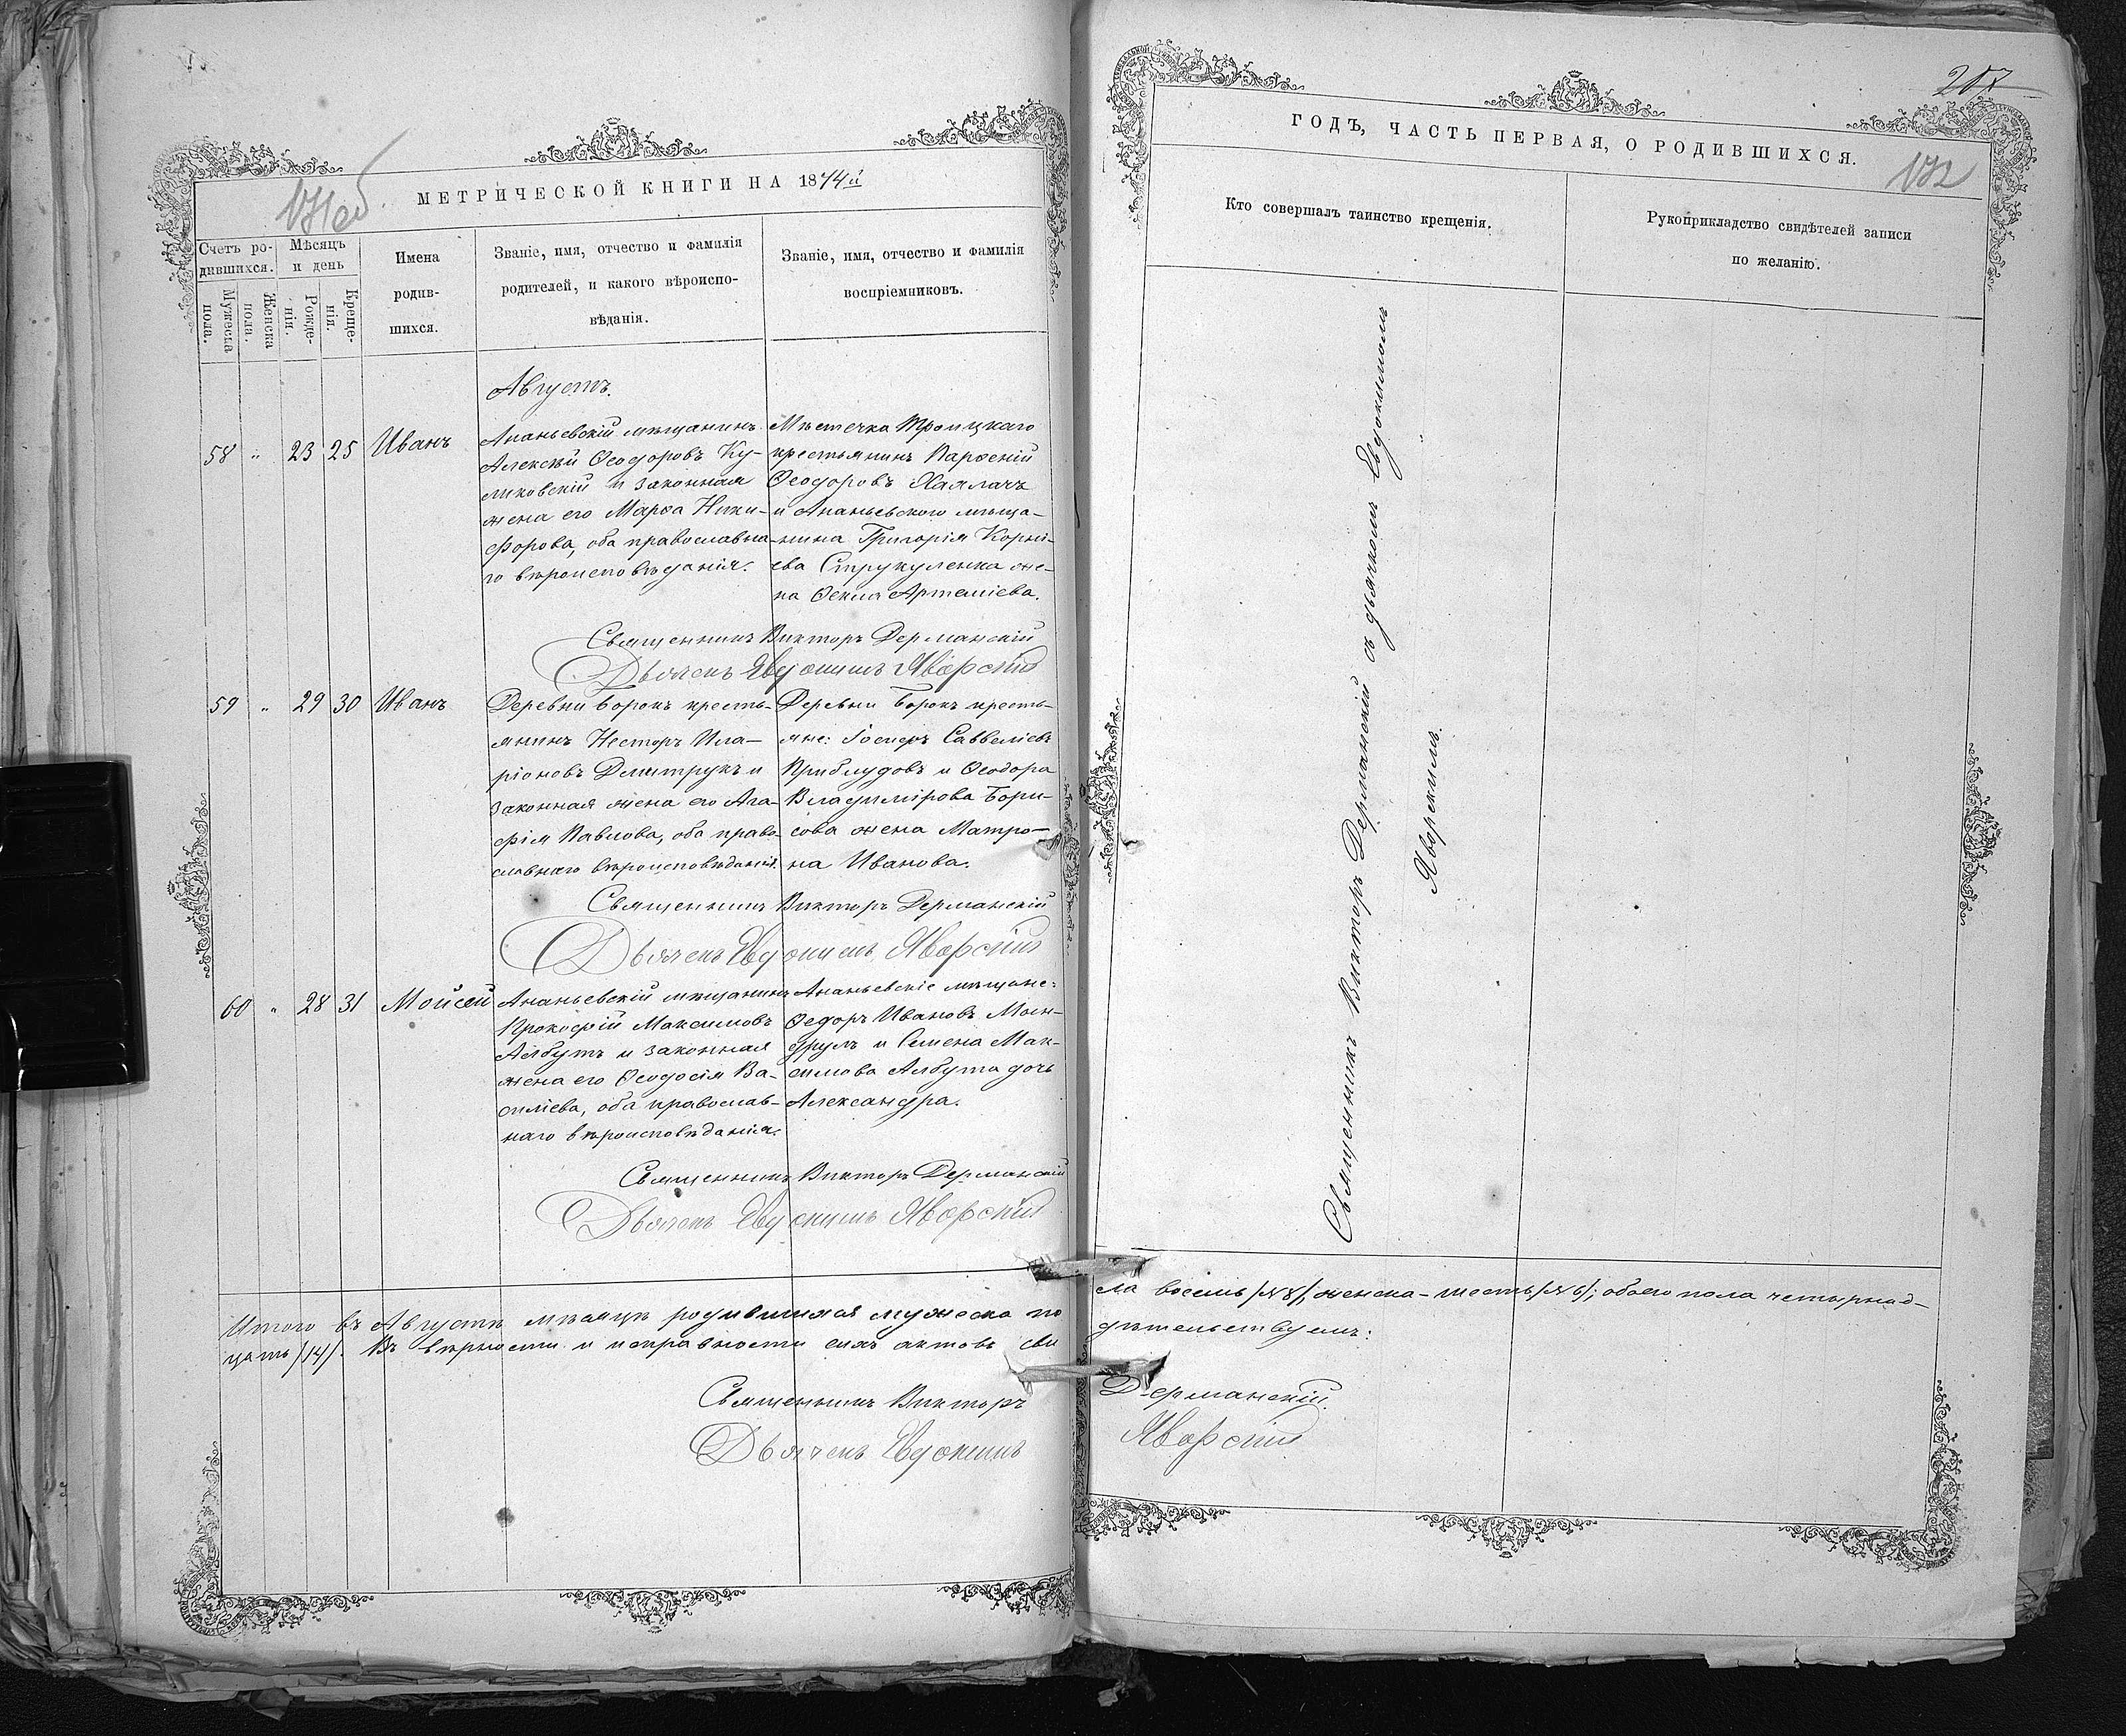 171об
МЕТРИЧЕСКОЙ КНИГИ НА 1874й
Счетъ ро-
дившихся.
Мужеска
пола.
Женска
пола.
Мѣсяцъ
и день
Рожде-
нія.
Креще-
нія.
Имена
родив-
шихся.
Званіе, имя, отчество и фамилія
родителей, и какого вѣроиспо-
вѣданія.
Званіе, имя, отчество и фамилія
воспріемниковъ.
Августъ.
58 „ 23 25 Иванъ
Ананьевскій мѣщанинъ
Алексѣй Ѳеодоровъ Ку-
ликовскій и законная
жена его Марѳа Ники-
форова, оба православна-
го вѣроисповѣданія.
Мѣстечка Троицкаго
крестьянинъ Парѳеній
Ѳеодоровъ
и Ананьевского мѣща-
нина Григорія Корні-
ева Струкуленка же-
на Ѳекла Артеміева.
Священникъ Викторъ Дерманскій
Дьячекъ Евдокимъ Яворскій
59 „ 29 30 Иванъ
Деревни Борокъ кресть-
янинъ Несторъ Ила-
ріоновъ Дмитрукъ и
законная жена его Ага-
фія Павлова, оба право-
славнаго вѣроисповѣданія.
Деревни Борокъ кресть-
яне: Іосифъ Савеліевъ
Приблудовъ и Ѳеодора
Владимірова Бори-
сова жена Матро-
на Иванова.
Священникъ Викторъ Дерманскій
Дьячекъ Евдокимъ Яворскій
60 „ 28 31 Мойсей
Ананьевскій мѣщанинъ
Прокофій Максимовъ
Албутъ и законная
жена его Ѳеодосія Ва-
силіева, оба православ-
наго вѣроисповѣданія.
Ананьевскіе мѣщане:
Ѳедоръ Ивановъ Ман-
друлъ и Семена Мак-
симова Албута дочь
Александра.
Священникъ Викторъ Дерманскій
Дьячекъ Евдокимъ Яворскій
Итого въ Августѣ мѣсяцѣ родившихся мужеска по
цать /14/. Въ вѣрности и исправности сихъ актовъ сви
Священникъ Викторъ
Дьячекъ Евдокимъ
207
172
ГОДЪ, ЧАСТЬ ПЕРВАЯ, О РОДИВШИХСЯ.
Кто совершалъ таинство крещенія.
Рукоприкладство свидѣтелей записи
по желанію.
Священникъ Викторъ Дерманскій съ дьячкомъ Евдокимомъ
Яворскимъ.
ла восемь /№8/, женска - шесть /№6/; обоего пола четырнад-
дѣтельствуемъ:
Дерманскій.
Яворскій